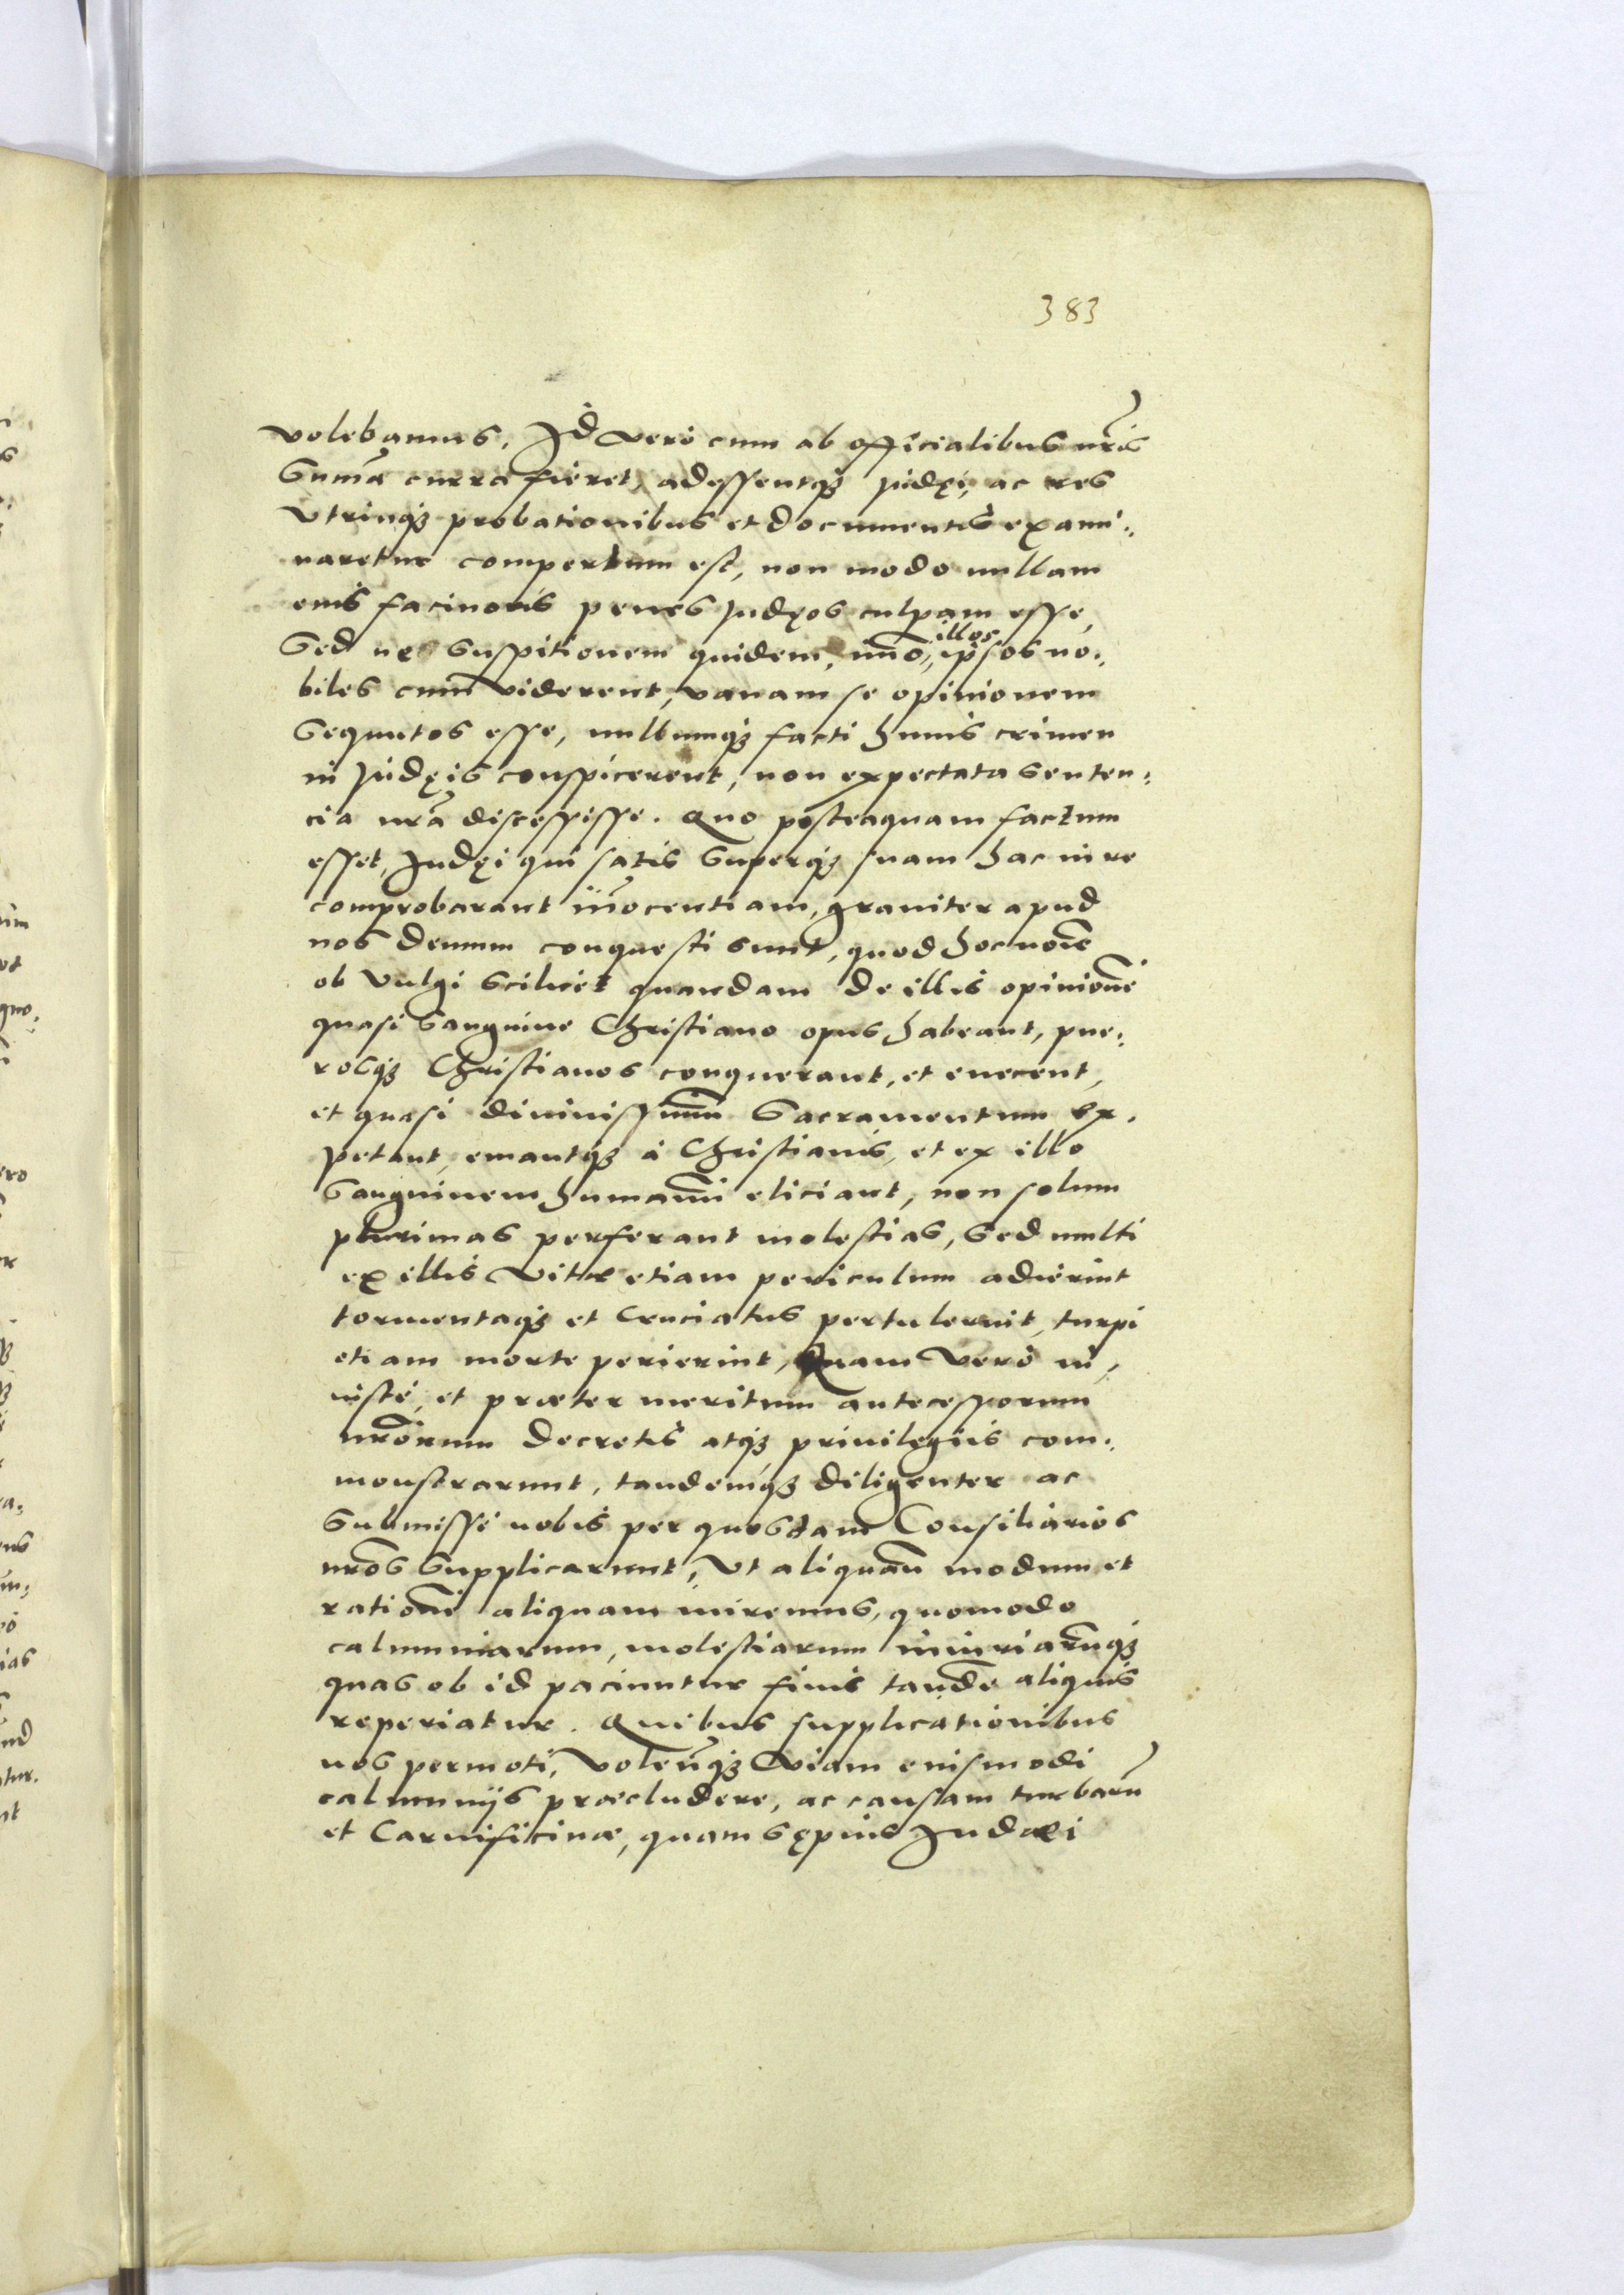 383
volebamus. Id vero cum ab officialibus nr̃is
Sum̃a curra fieret, adessentqꝫ Judęi, ac res
Vtrinqꝫ probationibus et documentis exami:
naretur compertum est, non modo nullam
eius facinoris penes Judęos culpam esse,
Sed ne Suspitionem quidem, im̃o, illos ipsos no:
biles cum viderent, vanam se opinionem
Sequutos esse, nullumqꝫ facti huius crimen
in Judęis conspicerent, non expectata senten:
cia nrã discessisse. Quo posteaquam factum
esset, Judęi qui satis Superqꝫ suam hac in re
comprobarant iñocentiam, graviter apud
nos demum conquesti sunt, quod hoc noĩe
ob vulgi scilicet quandam de illis opinionẽ
quasi sanguine Christiano opus habeant, pue:
rosqꝫ Christianos conquerant, et enecent,
et quasi divinissimũ Sacramentum ex.
petant, emantqꝫ à Christianis, et ex illo
Sanguinem humanũ eliciant, non solum
plurimas perferant molestias, Sed multi
ex illis vitæ etiam periculum adierint
tormentaqꝫ et cruciatus pertulerint, turpi
etiam morte perierint, Quam vero in,
iuste, et præter meritum antecessorum
nr̃orum decretis atqꝫ privilegiis com:
monstrarunt, tandemqꝫ diligenter ac
Submisse nobis per quosdam Consiliarios
nr̃os Supplicarunt, Vt aliquem modum et
rationẽ aliquam iniremus, quomodo
calumniarum, molestiarum iniuriarũqꝫ
quas ob id paciuntur finis tandẽ aliquis
reperiatur. Quibus supplicationibus
nos permoti, Volentesqꝫ viam eiusmodi
calumniis præcludere, ac causam turbarũ
et Carnificinæ, quam sępius Judæi